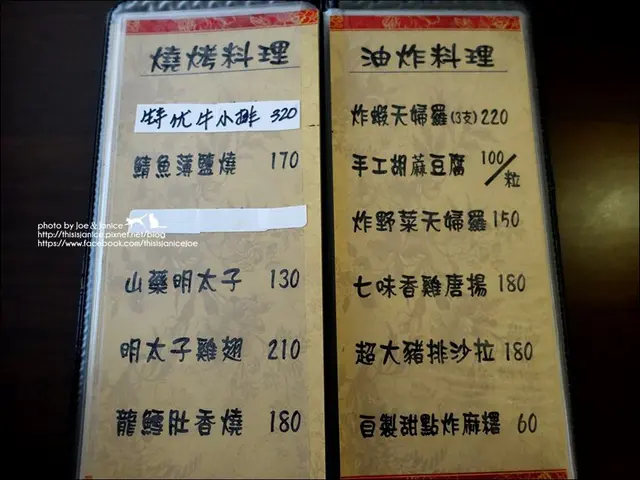 燒烤料理
特优牛小排 320
鯖魚薄鹽燒 170
山藥明太子 130
明太子雞翅 210
龍鱈肚香燒 180
油炸料理
炸蝦天婦羅(3支) 220
手工胡蔴豆腐 100/粒
炸野菜天婦羅 150
七味香雞唐揚 180
超大豬排沙拉 180
自製甜點炸麻糬 60
photo by Joe & Janice
http://thisisjanice.pixnet.net/blog
https://www.facebook.com/thisisjanicejoe